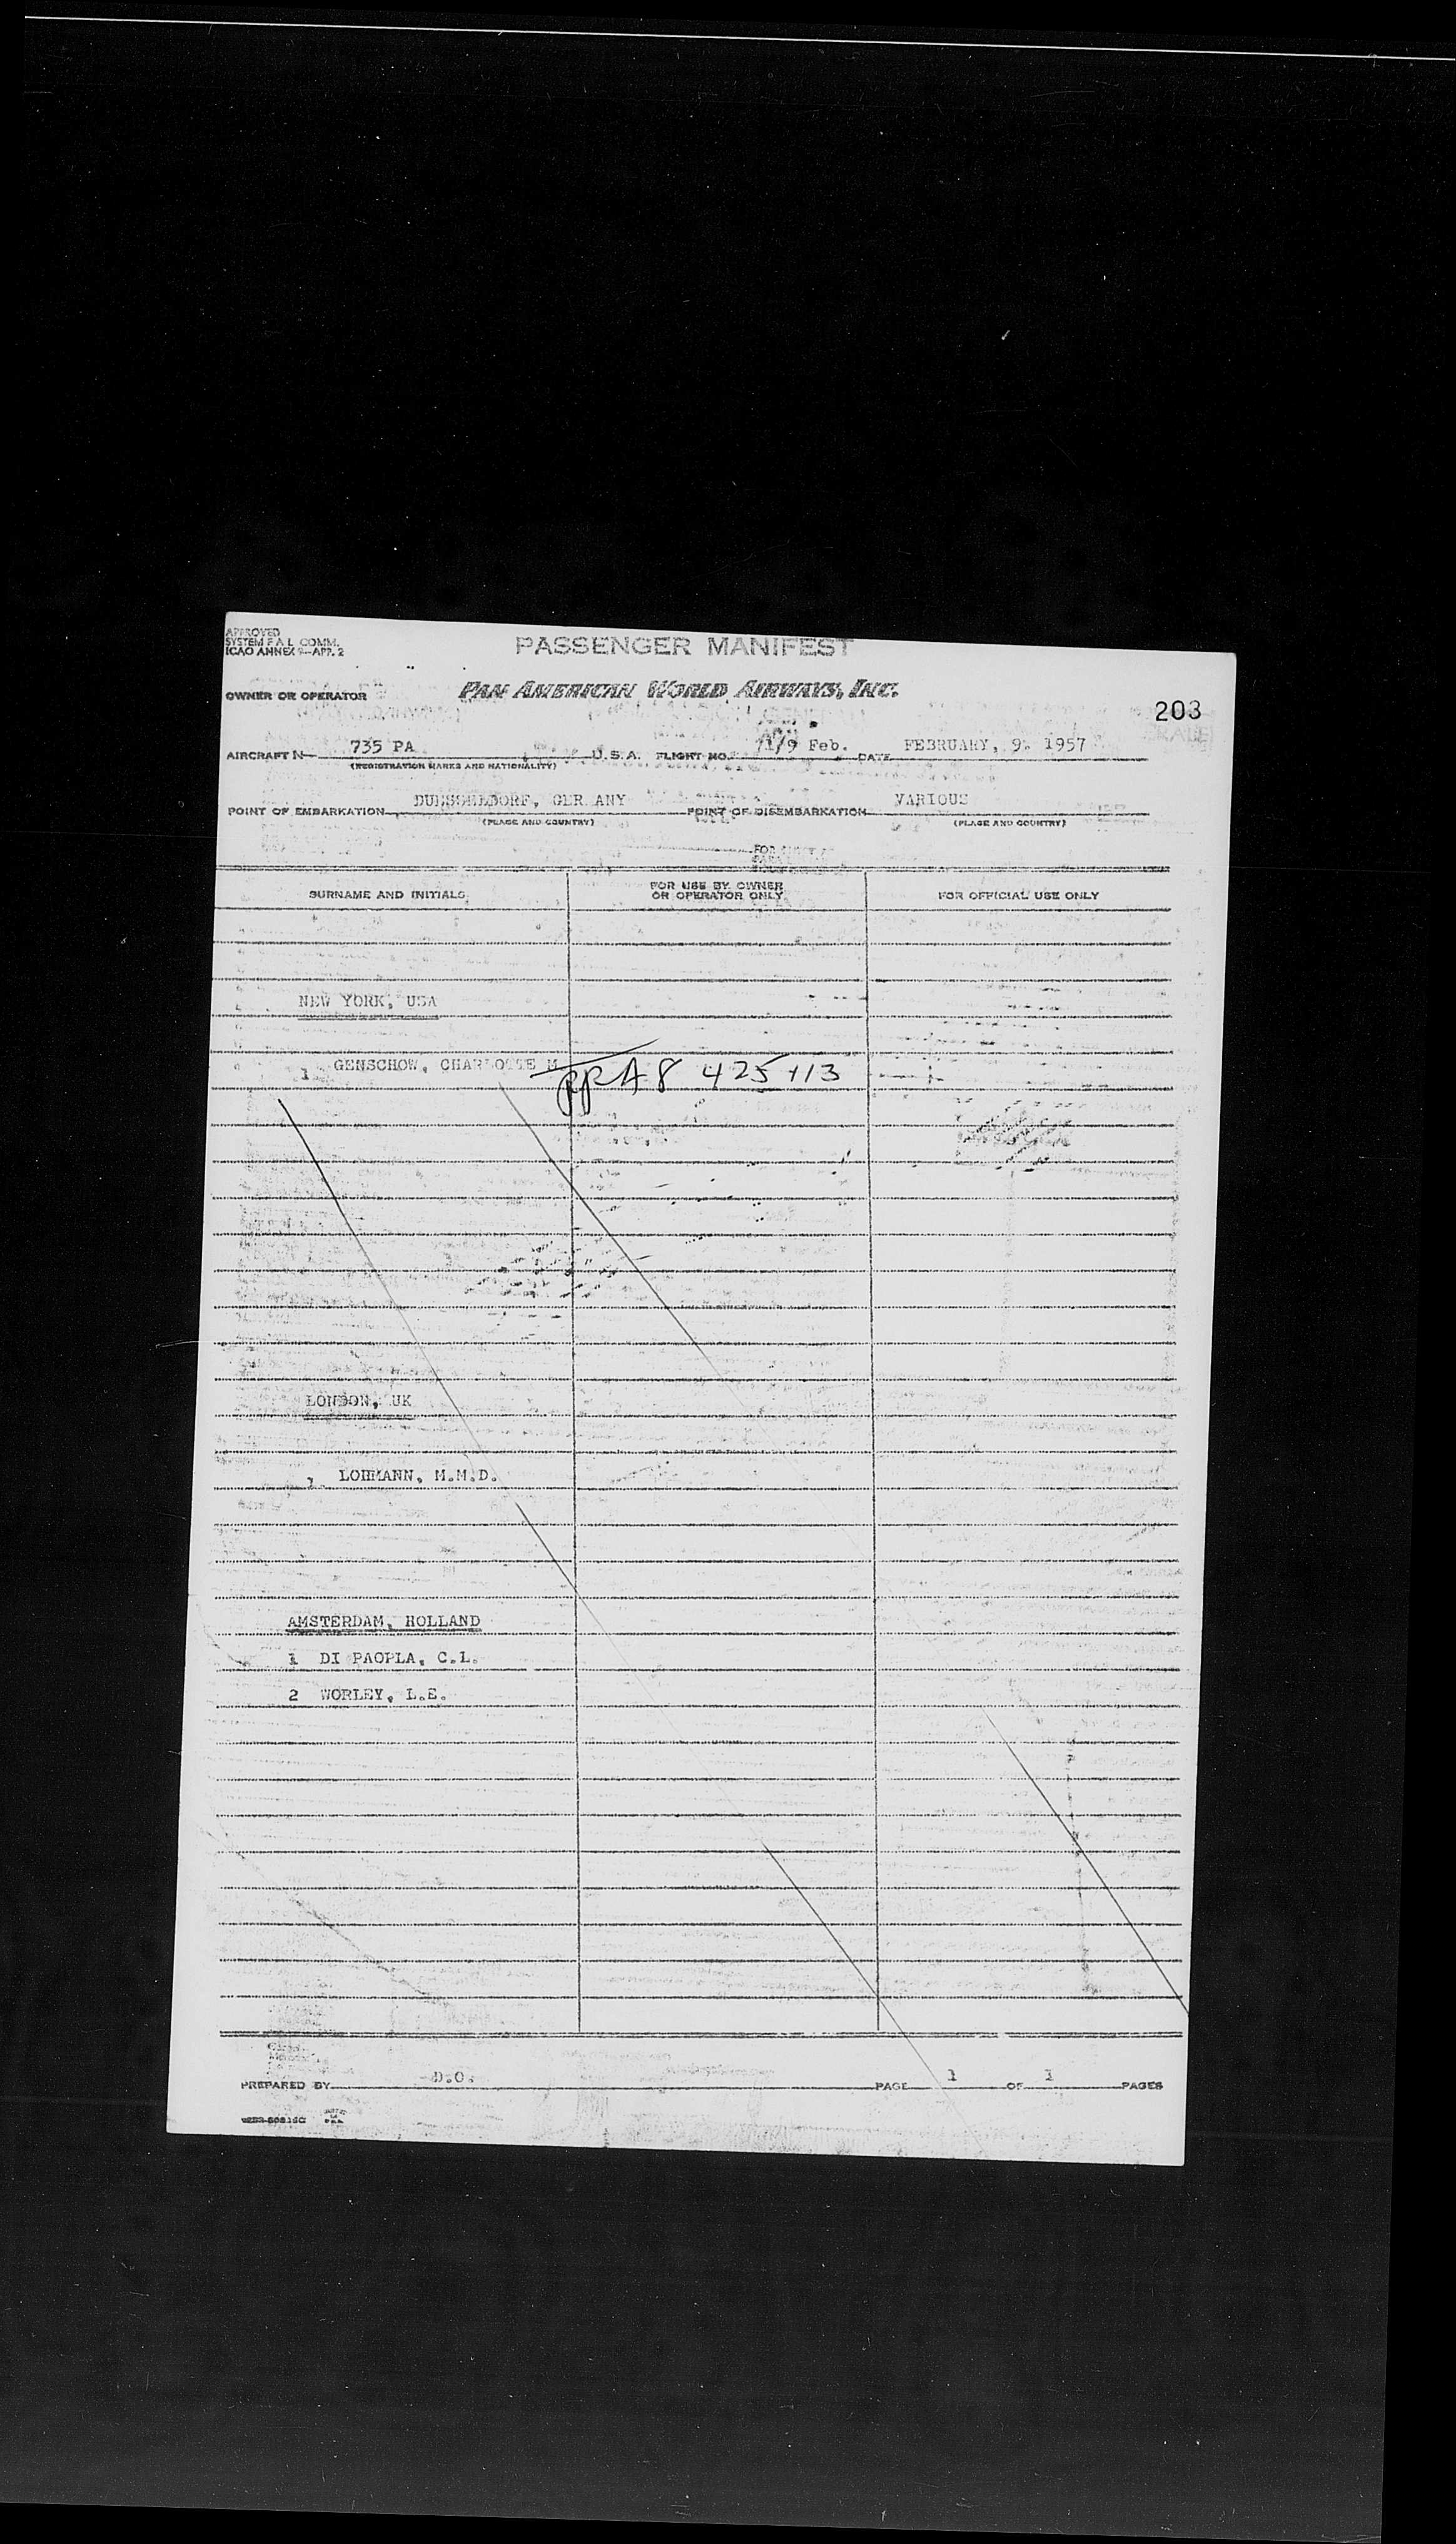 APPROVED
SYSTEM F A L COMM.
ICAO ANNEX 9—APP. 2
PASSENGER MANIFEST
OWNER OR OPERATOR PAN AMERICAN WORLD AIRWAYS, INC.
203
AIRCRAFT N— 735 PA U.S.A. FLIGHT NO. 71/9 Feb. DATE FEBRUARY, 9. 1957
(REGISTRATION MARKS AND NATIONALITY)
POINT OF EMBARKATION DUESSELDORF, GER ANY POINT OF DISEMBARKATION VARIOUS
(PLACE AND COUNTRY) (PLACE AND COUNTRY)
FOR
SURNAME AND INITIALS FOR USE BY OWNER OR OPERATOR ONLY FOR OFFICIAL USE ONLY
NEW YORK, USA
1 GENSCHOW, CHARLOTTE M A8 425 113
LONDON, UK
1 LOHMANN, M.M.D.
AMSTERDAM, HOLLAND
1 DI PAOPLA, C.L.
2 WORLEY, L.E.
PREPARED BY D.O. PAGE 1 OF 1 PAGES